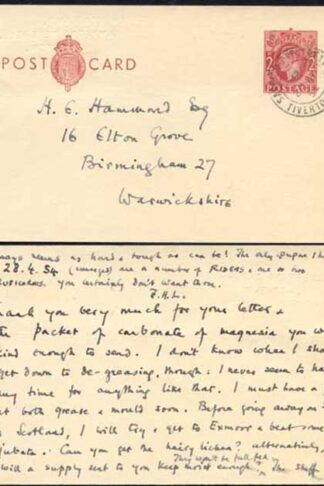 POST CARD
2
POSTAGE
TIVERTON
H. E. Hammond Esq
16 Elton Grove
Birmingham 27
Warwickshire
always seems as hard & tough as can be! The only
28.4.54 (emerged) are a number of RIDERS, & one or two
you certainly don't want them.
Thank you very much for your letter &
the packet of carbonate of magnesia you w
kind enough to send. I don't know when I sha
get down to de-greasing, though: I never seem to ha
any time for anything like that. I must have a
at both grease & mould soon. Before going away on
to Scotland, I will try & get to Exmoor & beat some
jubata. Can you get me hairy lichen? alternatively,
They won't be full fed
will a supply sent to you keep moist enough? The stuff